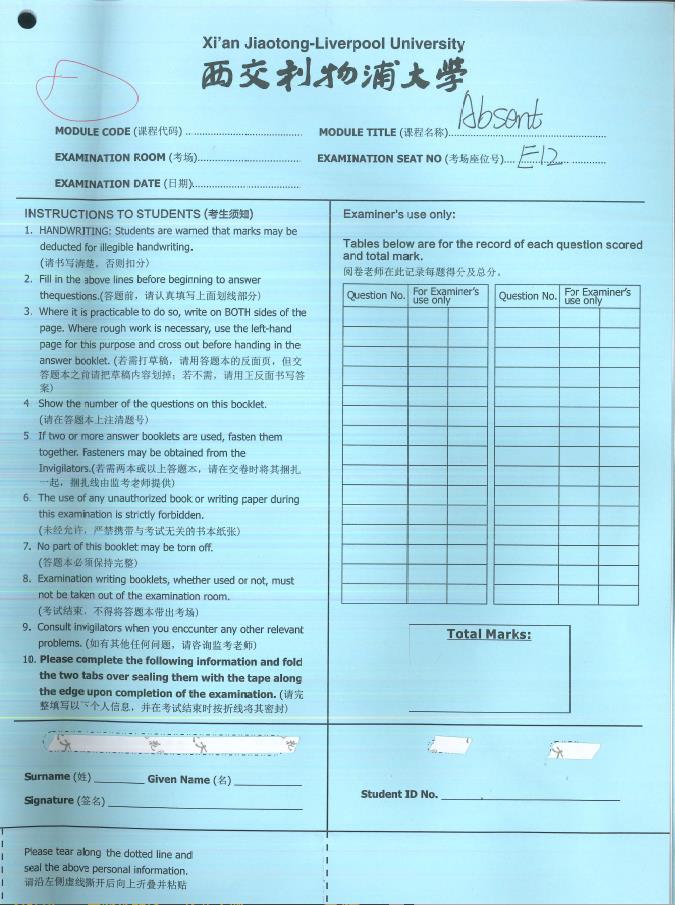 Xi'an Jiaotong-Liverpool University
西交利物浦大學
Absent
MODULE CODE (课程代码) MODULE TITLE (课程名称)
EXAMINATION ROOM (考场) EXAMINATION SEAT NO (考场座位号) E12
EXAMINATION DATE (日期)
INSTRUCTIONS TO STUDENTS (考生须知)
1. HANDWRITING: Students are warned that marks may be
deducted for illegible handwriting.
(请书写清楚，否则扣分)
2. Fill in the above lines before beginning to answer
thequestions.(答题前，请认真填写上面划线部分)
3. Where it is practicable to do so, write on BOTH sides of the
page. Where rough work is necessary, use the left-hand
page for this purpose and cross out before handing in the
answer booklet. (若需打草稿，请用答题本的反面页，但交
答题本之前请把草稿内容划掉；若不需，请用正反面书写答
案)
4 Show the number of the questions on this booklet.
(请在答题本上注清题号)
5. If two or more answer booklets are used, fasten them
together. Fasteners may be obtained from the
Invigilators.(若需两本或以上答题本，请在交卷时将其捆扎
一起，捆扎线由监考老师提供)
6. The use of any unauthorized book or writing paper during
this examination is strictly forbidden.
(未经允许，严禁携带与考试无关的书本纸张)
7. No part of this booklet may be torn off.
(答题本必须保持完整)
8. Examination writing booklets, whether used or not, must
not be taken out of the examination room.
(考试结束，不得将答题本带出考场)
9. Consult invigilators when you encounter any other relevant
problems. (如有其他任何问题，请咨询监考老师)
10. Please complete the following information and fold
the two tabs over sealing them with the tape along
the edge upon completion of the examination. (请完
整填写以下个人信息，并在考试结束时按折线将其密封)
Examiner's use only:
Tables below are for the record of each question scored
and total mark.
阅卷老师在此记录每题得分及总分。
Question No. For Examiner's use only Question No. For Examiner's use only
Total Marks:
Surname (姓) Given Name (名)
Signature (签名)
Student ID No.
Please tear along the dotted line and
seal the above personal information.
请沿左侧虚线撕开后向上折叠并粘贴